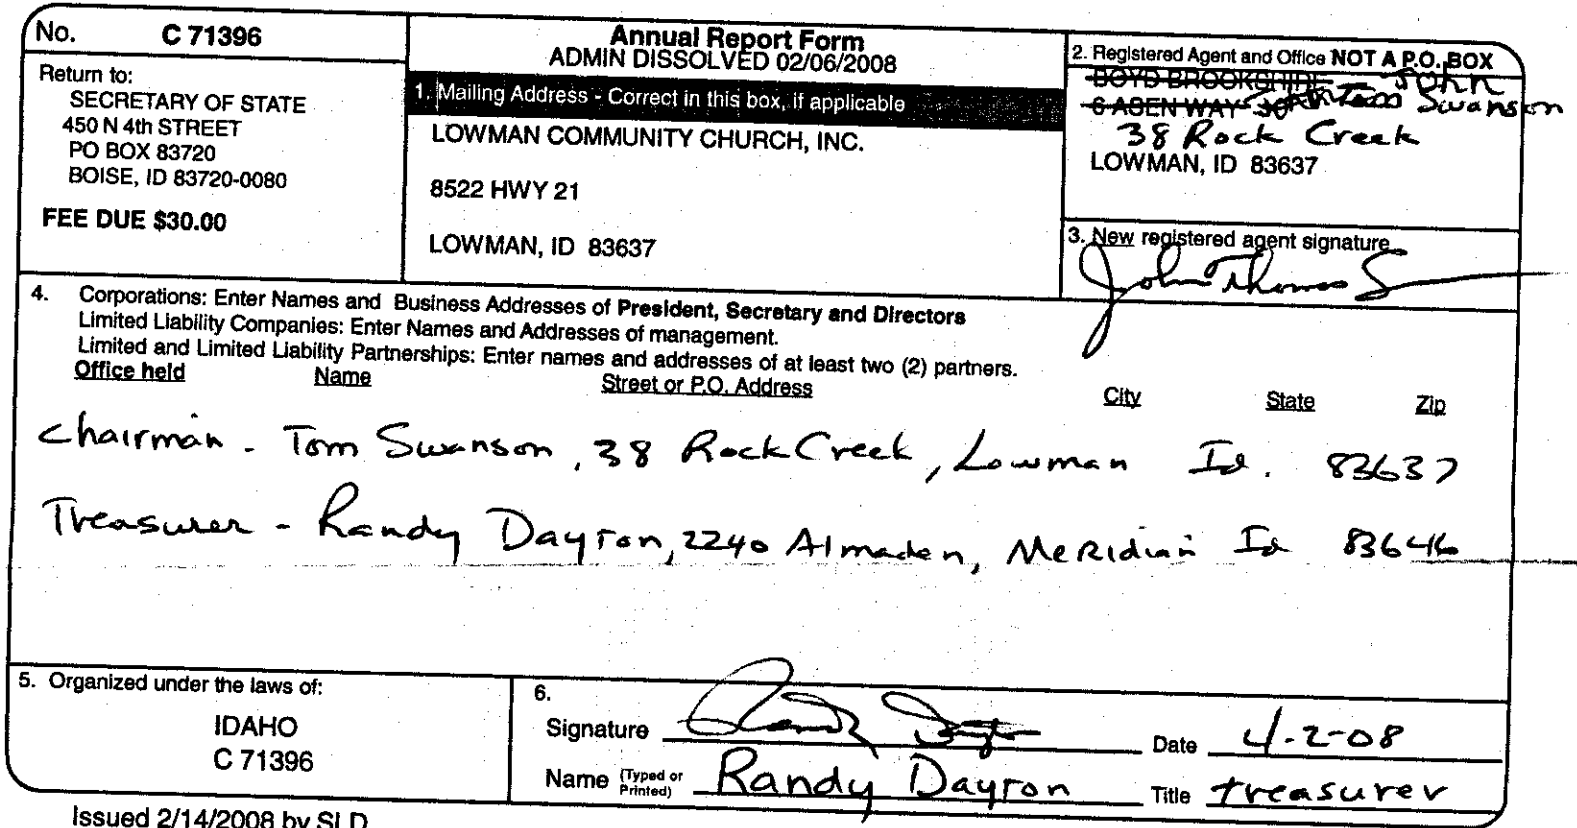 No. C 71396
Return to:
SECRETARY OF STATE
450 N 4th STREET
PO BOX 83720
BOISE, ID 83720-0080
FEE DUE $30.00
Annual Report Form
ADMIN DISSOLVED 02/06/2008
1. Mailing Address - Correct in this box, if applicable
LOWMAN COMMUNITY CHURCH, INC.
8522 HWY 21
LOWMAN, ID 83637
2. Registered Agent and Office NOT A P.O. BOX
BOYD BROOKSHIRE John
6 ASEN WAY Tom Swanson
38 Rock Creek
LOWMAN, ID 83637
3. New registered agent signature
John Thomas S
4. Corporations: Enter Names and Business Addresses of President, Secretary and Directors
Limited Liability Companies: Enter Names and Addresses of management.
Limited and Limited Liability Partnerships: Enter names and addresses of at least two (2) partners.
Office held Name Street or P.O. Address City State Zip
Chairman - Tom Swanson, 38 Rock Creek, Lowman Id. 83637
Treasurer - Randy Dayton, 2240 Almaden, Meridian Id 83646
5. Organized under the laws of:
IDAHO
C 71396
6.
Signature Randy Dayton Date 4-2-08
Name (Typed or Printed) Randy Dayton Title treasurer
Issued 2/14/2008 by SLD